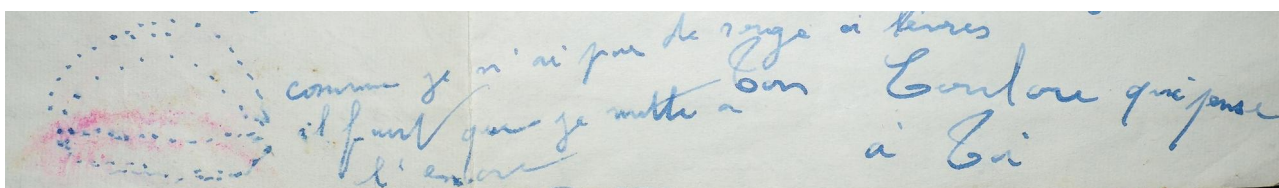 comme je n'ai pas de rouge à lèvres
il faut que je mette a
l'encre
Ton qui pense
à Toi